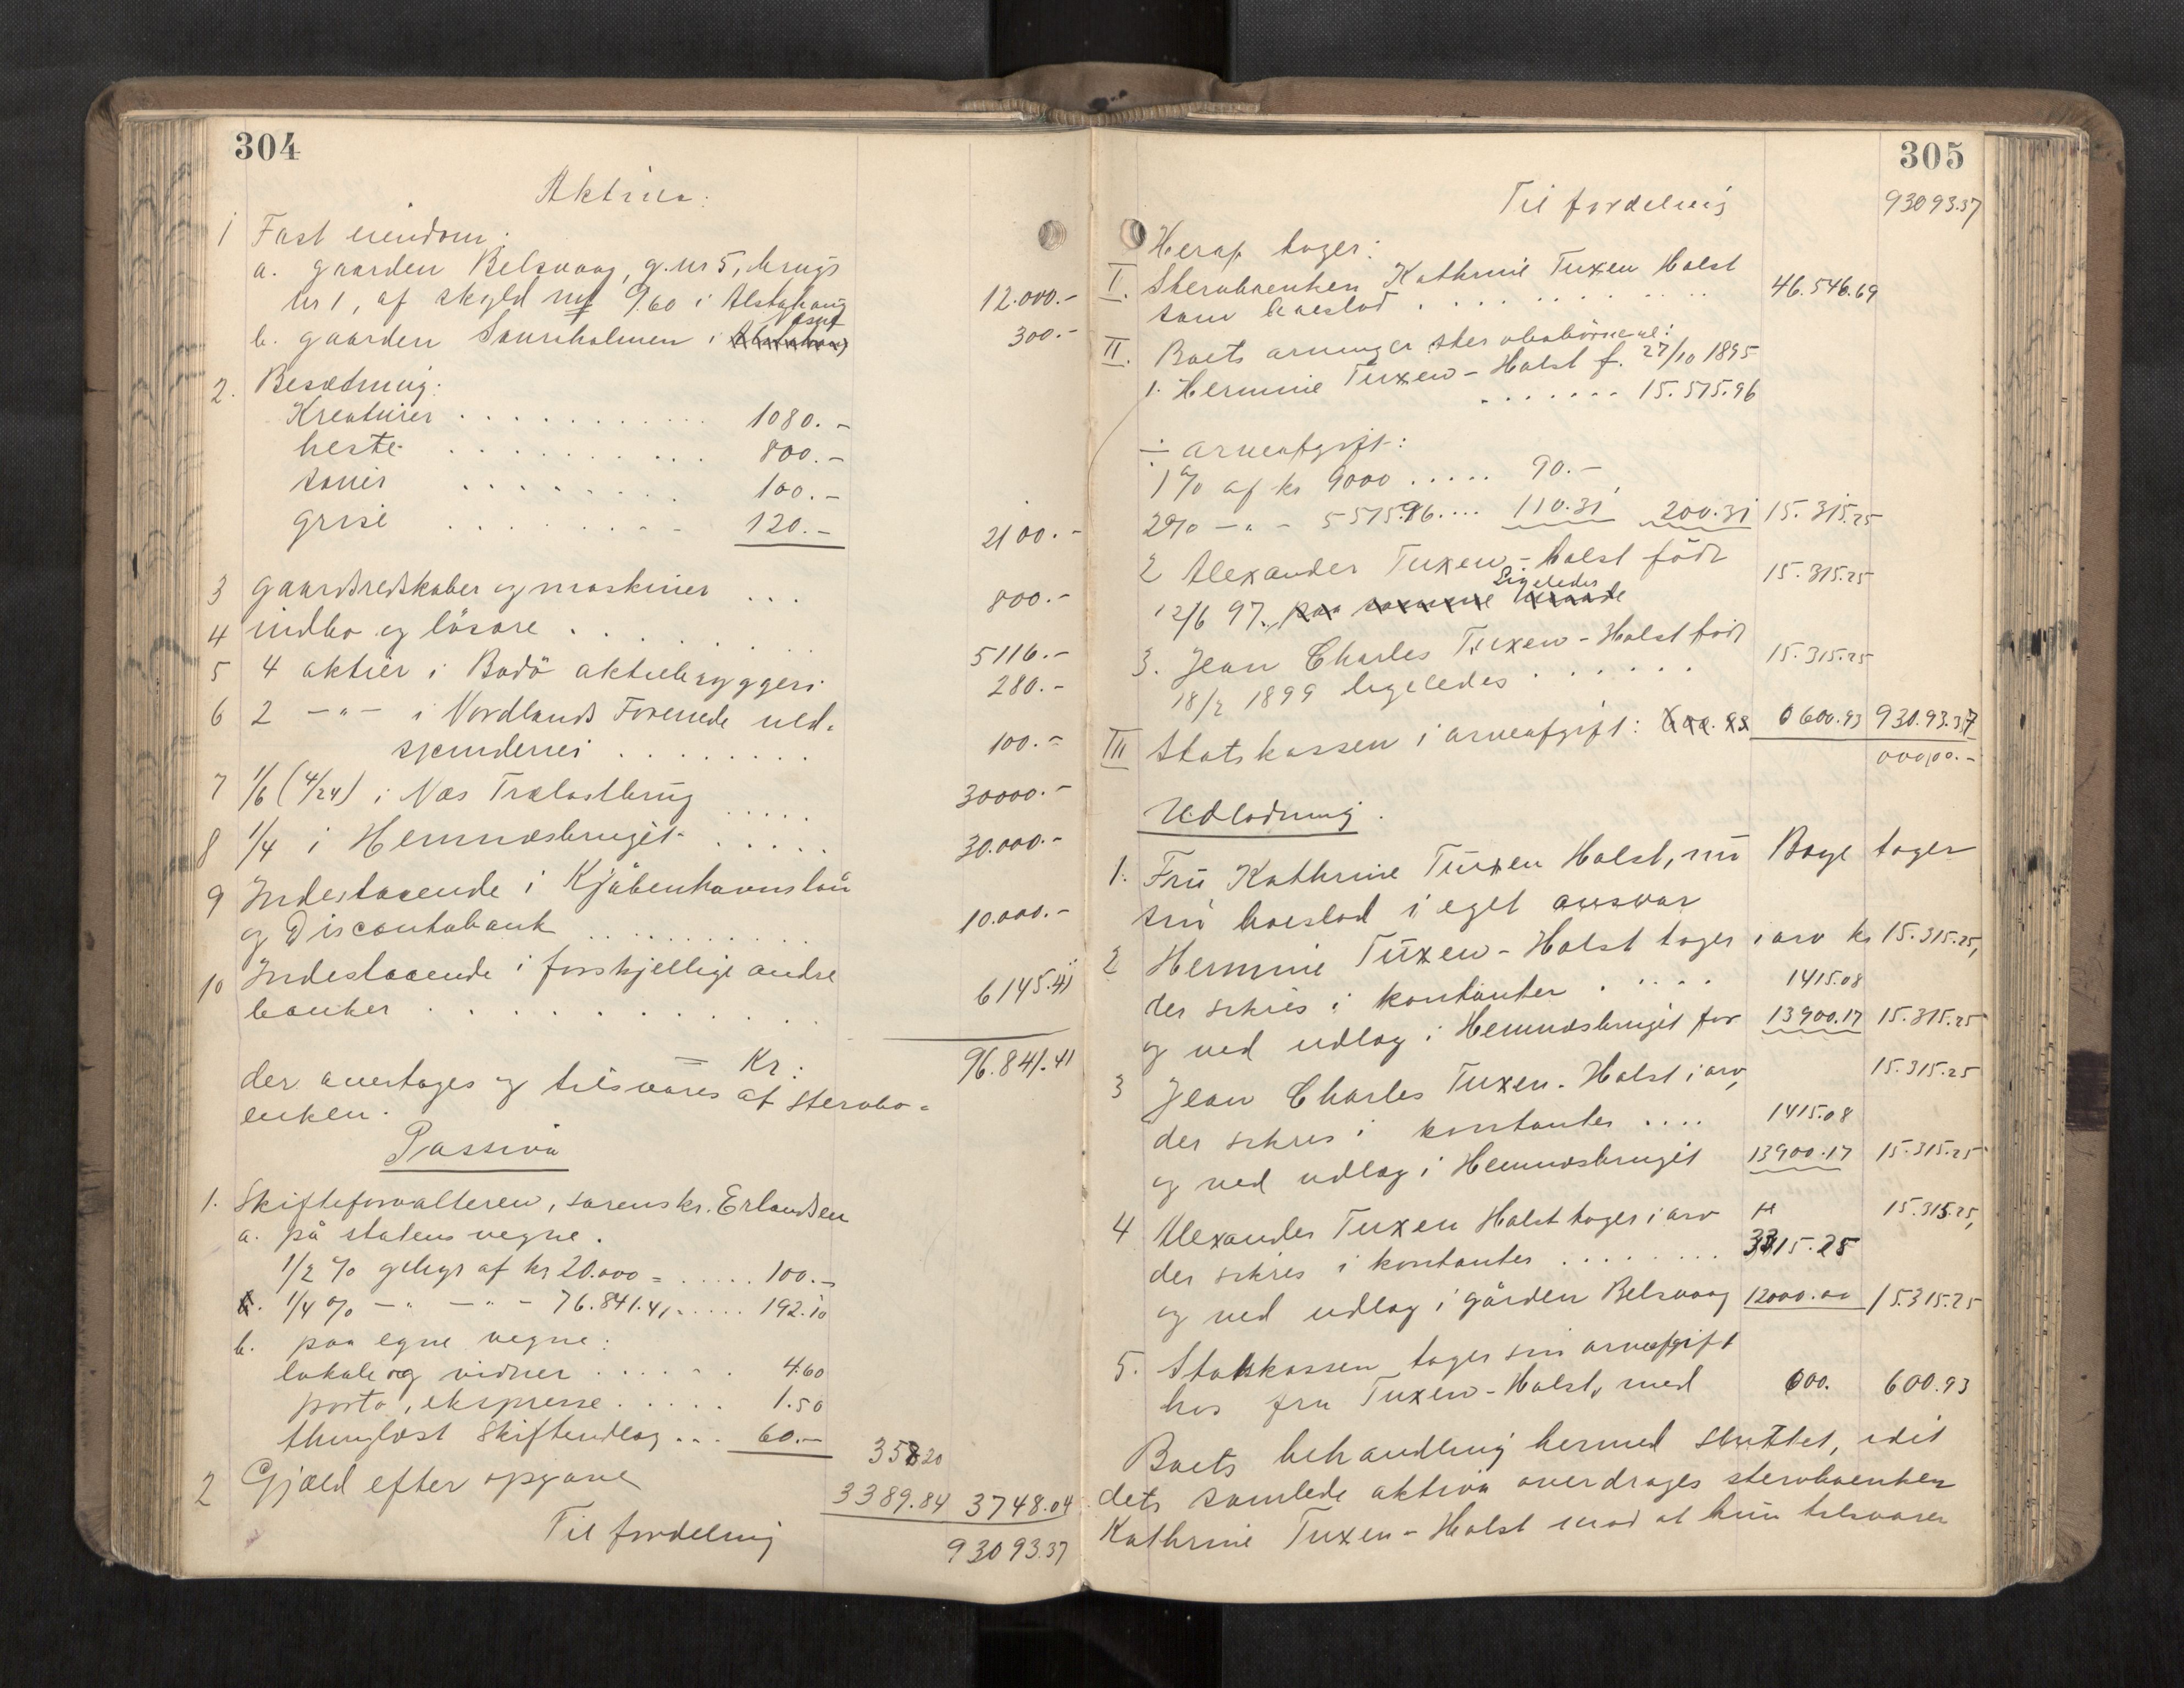 304
Aktiva:
1 Fast eiendom:
a. gaarden Belsvaag, g.nr 5, brugs
nr 1, af skyld mk 9.60 i Alstahaug 12.000.-
b. gaarden Saursholmen i 300.-
2. Besætning:
Kreaturer . . . . 1080.-
heste . . . . 800.-
sauer . . . . 100.-
grise . . . . 120.- 2100.-
3 gaardsredskaber og maskiner . . . 800.-
4 indbo og løsøre . . . . 5116.-
5 4 aktier i Bodö aktiebryggeri 280.-
6 2 -"- i Nordlands Forenede uld-
spinderier . . . . 100.-
7 1/6 (4/24) i Næs Trælastbrug . . . . 30000.-
8 1/4 i Hemnæsbruget . . . . 30.000.-
9 Indestaaende i Kjøbenhavns laan
og Discontobank . . . . 10.000.-
10 Indestaaende i forskjellige andre
banker . . . . 6145.41
Kr: 96.841.41
der overtages og tilsvares af stervbo-
enken.
Passiva
1. Skifteforvalteren, sorenskr. Erlandsen
a. på statens vegne.
1/2 % gebyr af kr 20.000 = . . . . 100.-
1/4 % -"- -"- 76.841.41 . . . . 192.10
b. paa egne vegne:
lokale og vidner . . . . 4.60
porto, ekspresse . . . . 1.50
thinglæst skifteudlæg . . . 60.- 358.20
2 Gjæld efter opgave 3389.84 3748.04
Til fordeling 93093.37
305
Til fordeling 93093.37
Heraf tager:
I. Stervboenken Kathrine Tuxen Holst
som boeslod . . . . 46.546.69
II. Boets arvinger stervbobørnene:
1. Hermine Tuxen-Holst f. 27/10 1895
. . . . 15.515.96
÷ arveafgift:
1 % af kr 9000 . . . . . 90.-
2% -"- 5515.96 . . . . 110.31 200.31 15.315.25
2 Alexander Tuxen-Holst född 15.315.25
12/6 97. paa samme maade Ligeledes
3. Jean Charles Tuxen-Holst född
18/2 1899 ligeledes . . . . 15.315.25
III Statskassen i arveafgift: 600.93 93093.37
00000.-
Udlodning.
1. Fru Kathrine Tuxen Holst, nu Boye tager
sin boeslod i eget ansvar
2 Hermine Tuxen-Holst tager i arv kr 15.315.25,
der sikres i kontanter . . . . 1415.08
og ved udlæg i Hemnæsbruget for 13900.17 15.315.25
3 Jean Charles Tuxen-Holst i arv, 15.315.25
der sikres i kontanter . . . . 1415.08
og ved udlæg i Hemnæsbruget 13900.17 15.315.25
4 Alexander Tuxen Holst tager i arv kr 15.315.25,
der sikres i kontanter . . . . 3315.25
og ved udlæg i gården Belsvaag 12000.00 15.315.25
5. Statskassen tager sin arveafgift
hos fru Tuxen-Holst, med 600. 600.93
Boets behandling hermed sluttet, idet
dets samlede aktiva overdrages stervboenken
Kathrine Tuxen-Holst mod at hun tilsvarer